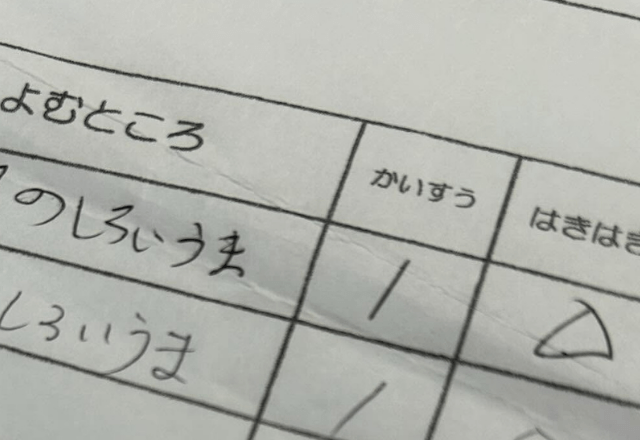 よむところ かいすう はきはき
のしろいうま 1 △
しろいうま 1